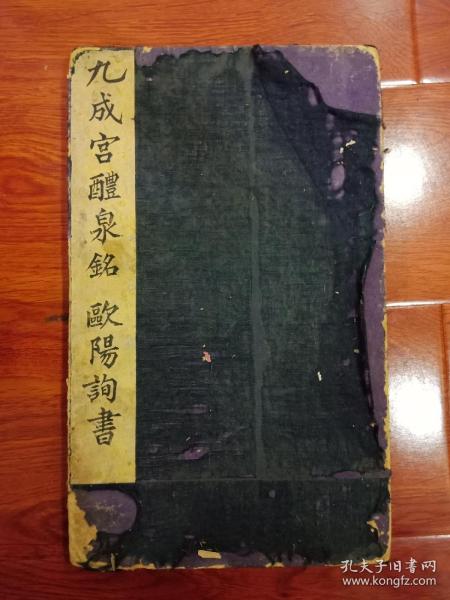 九成宫醴泉銘 歐陽詢書
孔夫子旧书网
www.kongfz.com